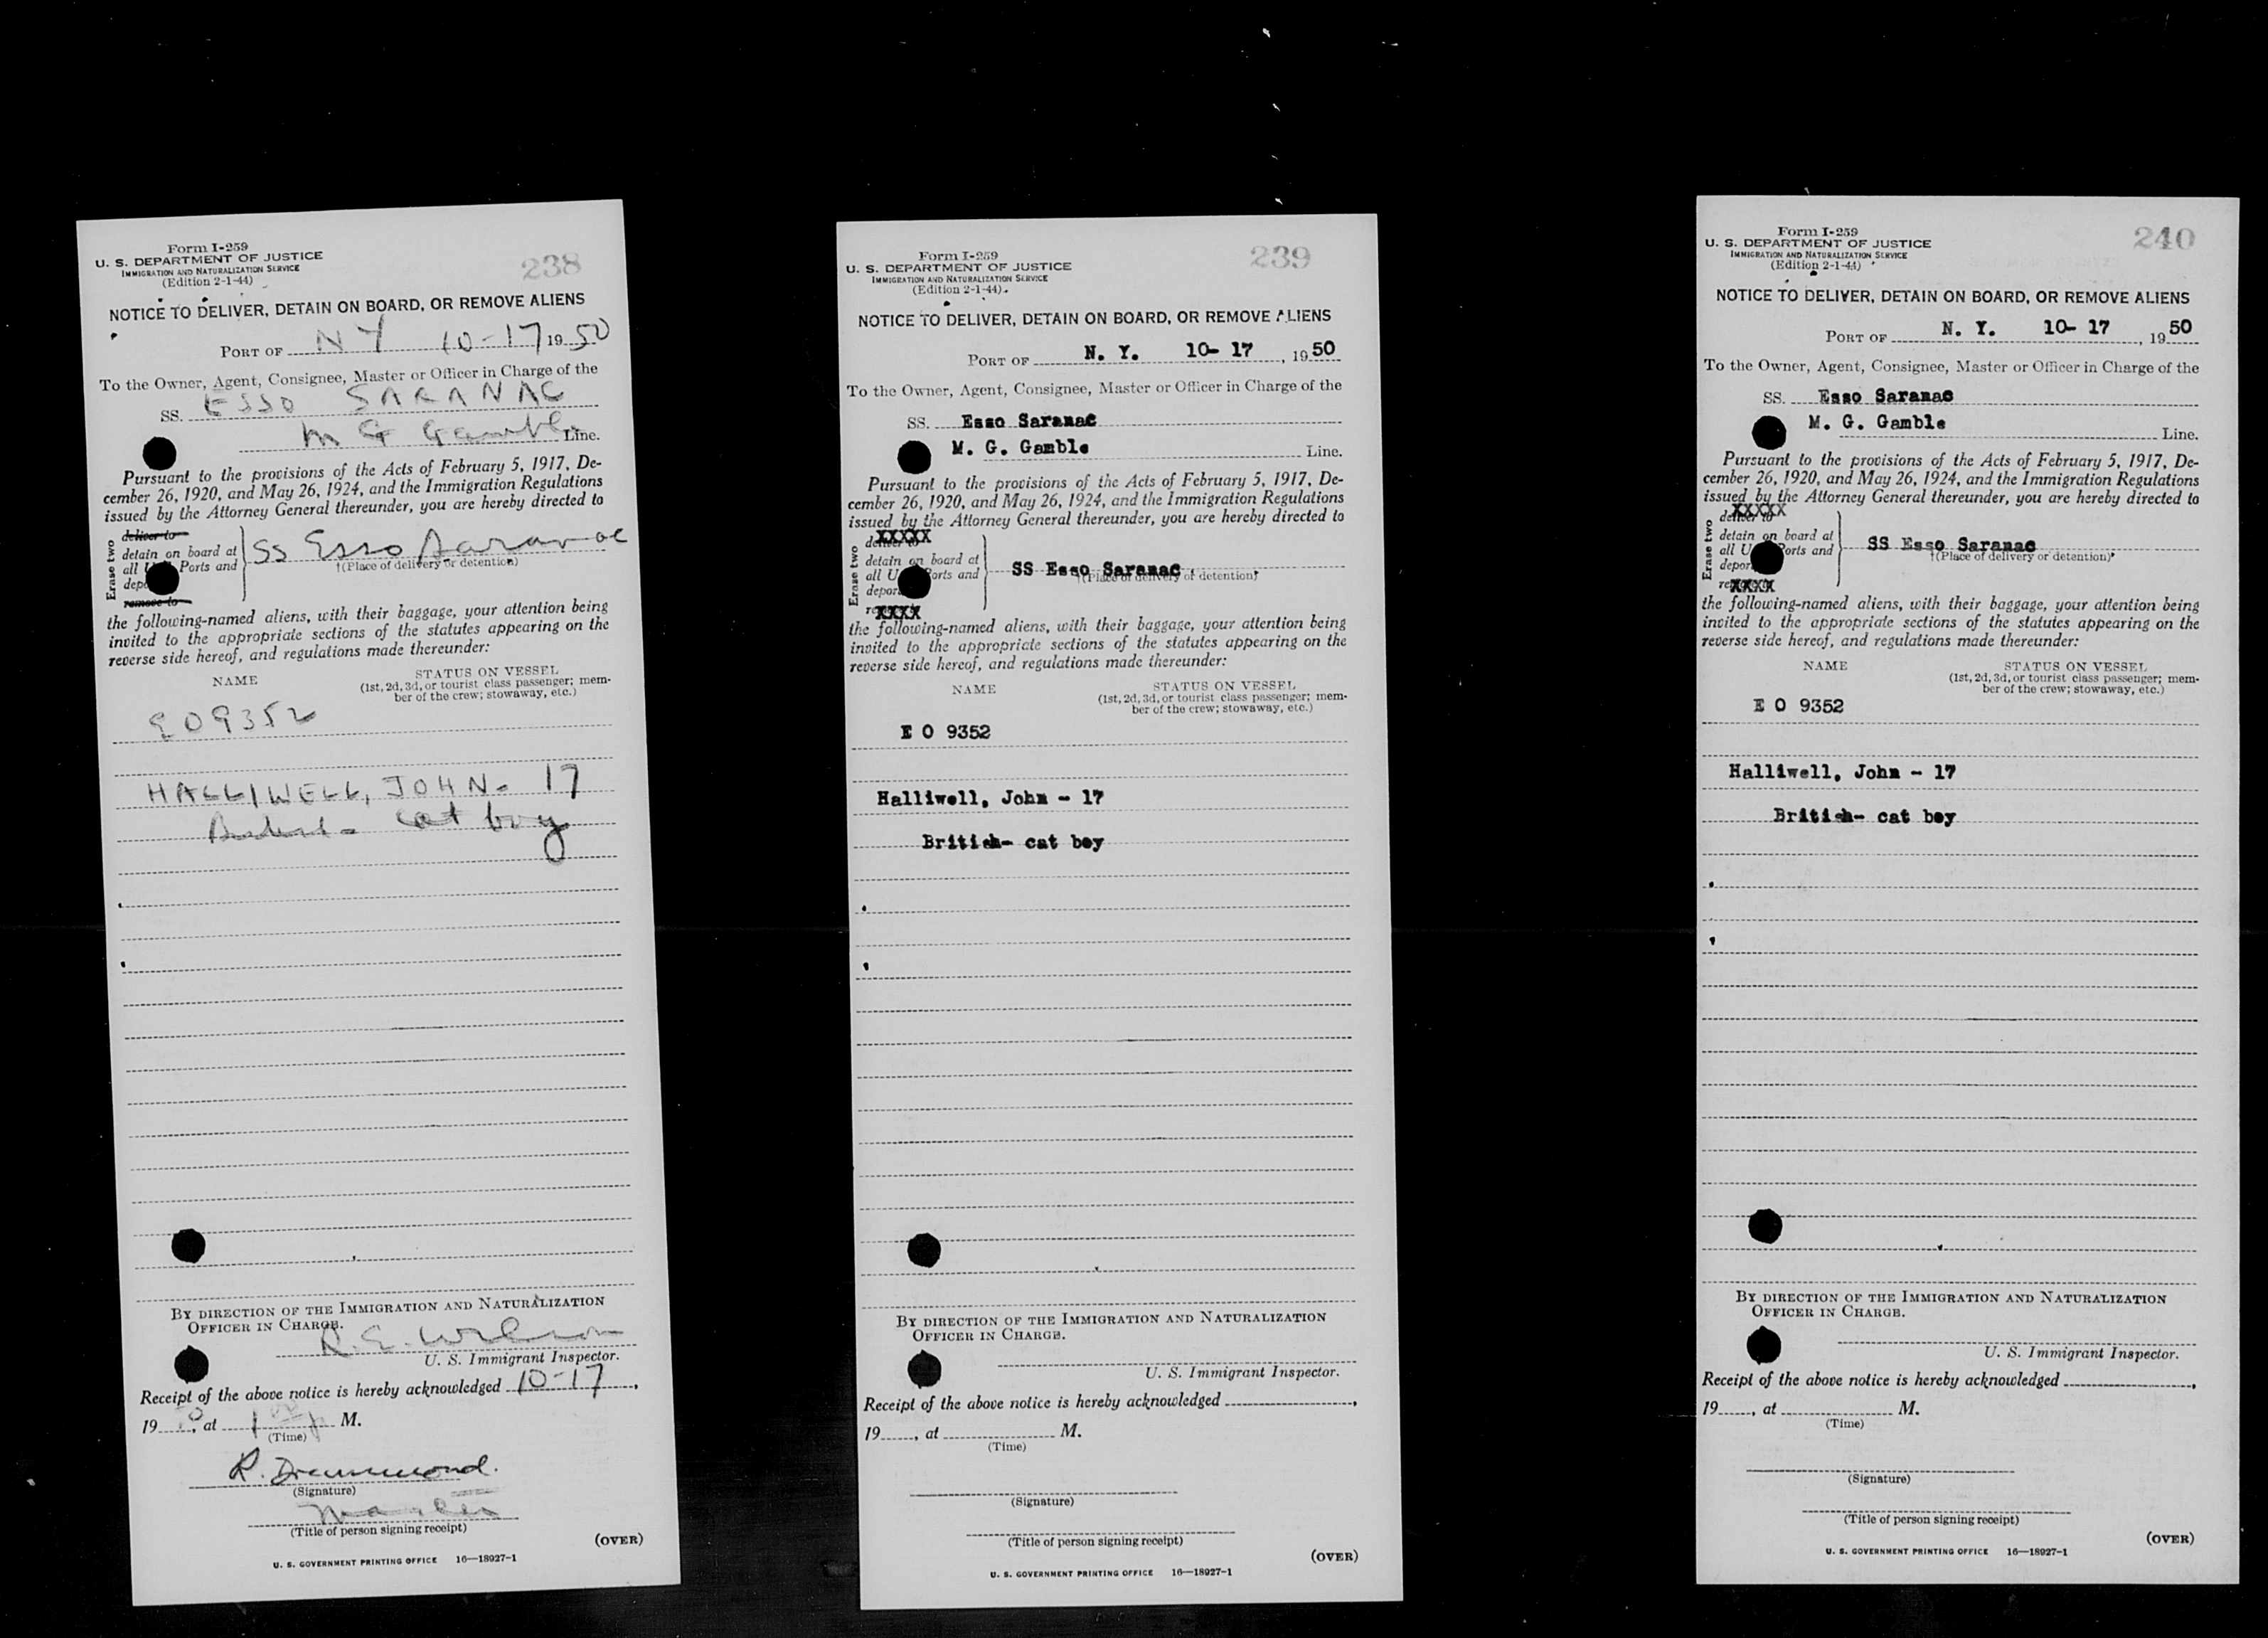 Form I-259
U. S. DEPARTMENT OF JUSTICE
IMMIGRATION AND NATURALIZATION SERVICE
(Edition 2-1-44)
238
NOTICE TO DELIVER, DETAIN ON BOARD, OR REMOVE ALIENS
PORT OF NY 10-17 1950
To the Owner, Agent, Consignee, Master or Officer in Charge of the
SS. ESSO SARANAC
M G Gamble Line.
Pursuant to the provisions of the Acts of February 5, 1917, De-
cember 26, 1920, and May 26, 1924, and the Immigration Regulations
issued by the Attorney General thereunder, you are hereby directed to
Erase two
deliver to
detain on board at
all U Ports and
depo
SS Esso Saranac
†(Place of delivery or detention)
remove to
the following-named aliens, with their baggage, your attention being
invited to the appropriate sections of the statutes appearing on the
reverse side hereof, and regulations made thereunder:
NAME STATUS ON VESSEL
(1st, 2d, 3d, or tourist class passenger; mem-
ber of the crew; stowaway, etc.)
EO9352
HALLIWELL, JOHN - 17
cat boy
BY DIRECTION OF THE IMMIGRATION AND NATURALIZATION
OFFICER IN CHARGE.
R. E. Wilson
U. S. Immigrant Inspector.
Receipt of the above notice is hereby acknowledged 10-17,
19 50, at 1 M.
(Time)
R. Drummond.
(Signature)
Master
(Title of person signing receipt)
(OVER)
U. S. GOVERNMENT PRINTING OFFICE 16—18927-1
Form I-259
U. S. DEPARTMENT OF JUSTICE
IMMIGRATION AND NATURALIZATION SERVICE
(Edition 2-1-44)
239
NOTICE TO DELIVER, DETAIN ON BOARD, OR REMOVE ALIENS
PORT OF N. Y. 10- 17, 1950
To the Owner, Agent, Consignee, Master or Officer in Charge of the
SS. Esso Saranac
M. G. Gamble Line.
Pursuant to the provisions of the Acts of February 5, 1917, De-
cember 26, 1920, and May 26, 1924, and the Immigration Regulations
issued by the Attorney General thereunder, you are hereby directed to
Erase two
XXXXX
deliver to
detain on board at
all U orts and
depor
SS Esso Saranac
†(Place of delivery of detention)
XXXX
the following-named aliens, with their baggage, your attention being
invited to the appropriate sections of the statutes appearing on the
reverse side hereof, and regulations made thereunder:
NAME STATUS ON VESSEL
(1st, 2d, 3d, or tourist class passenger; mem-
ber of the crew; stowaway, etc.)
E O 9352
Halliwell, John - 17
British- cat boy
BY DIRECTION OF THE IMMIGRATION AND NATURALIZATION
OFFICER IN CHARGE.
U. S. Immigrant Inspector.
Receipt of the above notice is hereby acknowledged ,
19 , at M.
(Time)
(Signature)
(Title of person signing receipt)
(OVER)
U. S. GOVERNMENT PRINTING OFFICE 16—18927-1
Form I-259
U. S. DEPARTMENT OF JUSTICE
IMMIGRATION AND NATURALIZATION SERVICE
(Edition 2-1-44)
240
NOTICE TO DELIVER, DETAIN ON BOARD, OR REMOVE ALIENS
PORT OF N. Y. 10- 17, 1950
To the Owner, Agent, Consignee, Master or Officer in Charge of the
SS. Esso Saranac
M. G. Gamble Line.
Pursuant to the provisions of the Acts of February 5, 1917, De-
cember 26, 1920, and May 26, 1924, and the Immigration Regulations
issued by the Attorney General thereunder, you are hereby directed to
Erase two
XXXXX
deliver to
detain on board at
all U Ports and
depor
SS Esso Saranac
†(Place of delivery or detention)
XXXX
the following-named aliens, with their baggage, your attention being
invited to the appropriate sections of the statutes appearing on the
reverse side hereof, and regulations made thereunder:
NAME STATUS ON VESSEL
(1st, 2d, 3d, or tourist class passenger; mem-
ber of the crew; stowaway, etc.)
E O 9352
Halliwell, John - 17
British- cat boy
BY DIRECTION OF THE IMMIGRATION AND NATURALIZATION
OFFICER IN CHARGE.
U. S. Immigrant Inspector.
Receipt of the above notice is hereby acknowledged ,
19 , at M.
(Time)
(Signature)
(Title of person signing receipt)
(OVER)
U. S. GOVERNMENT PRINTING OFFICE 16—18927-1